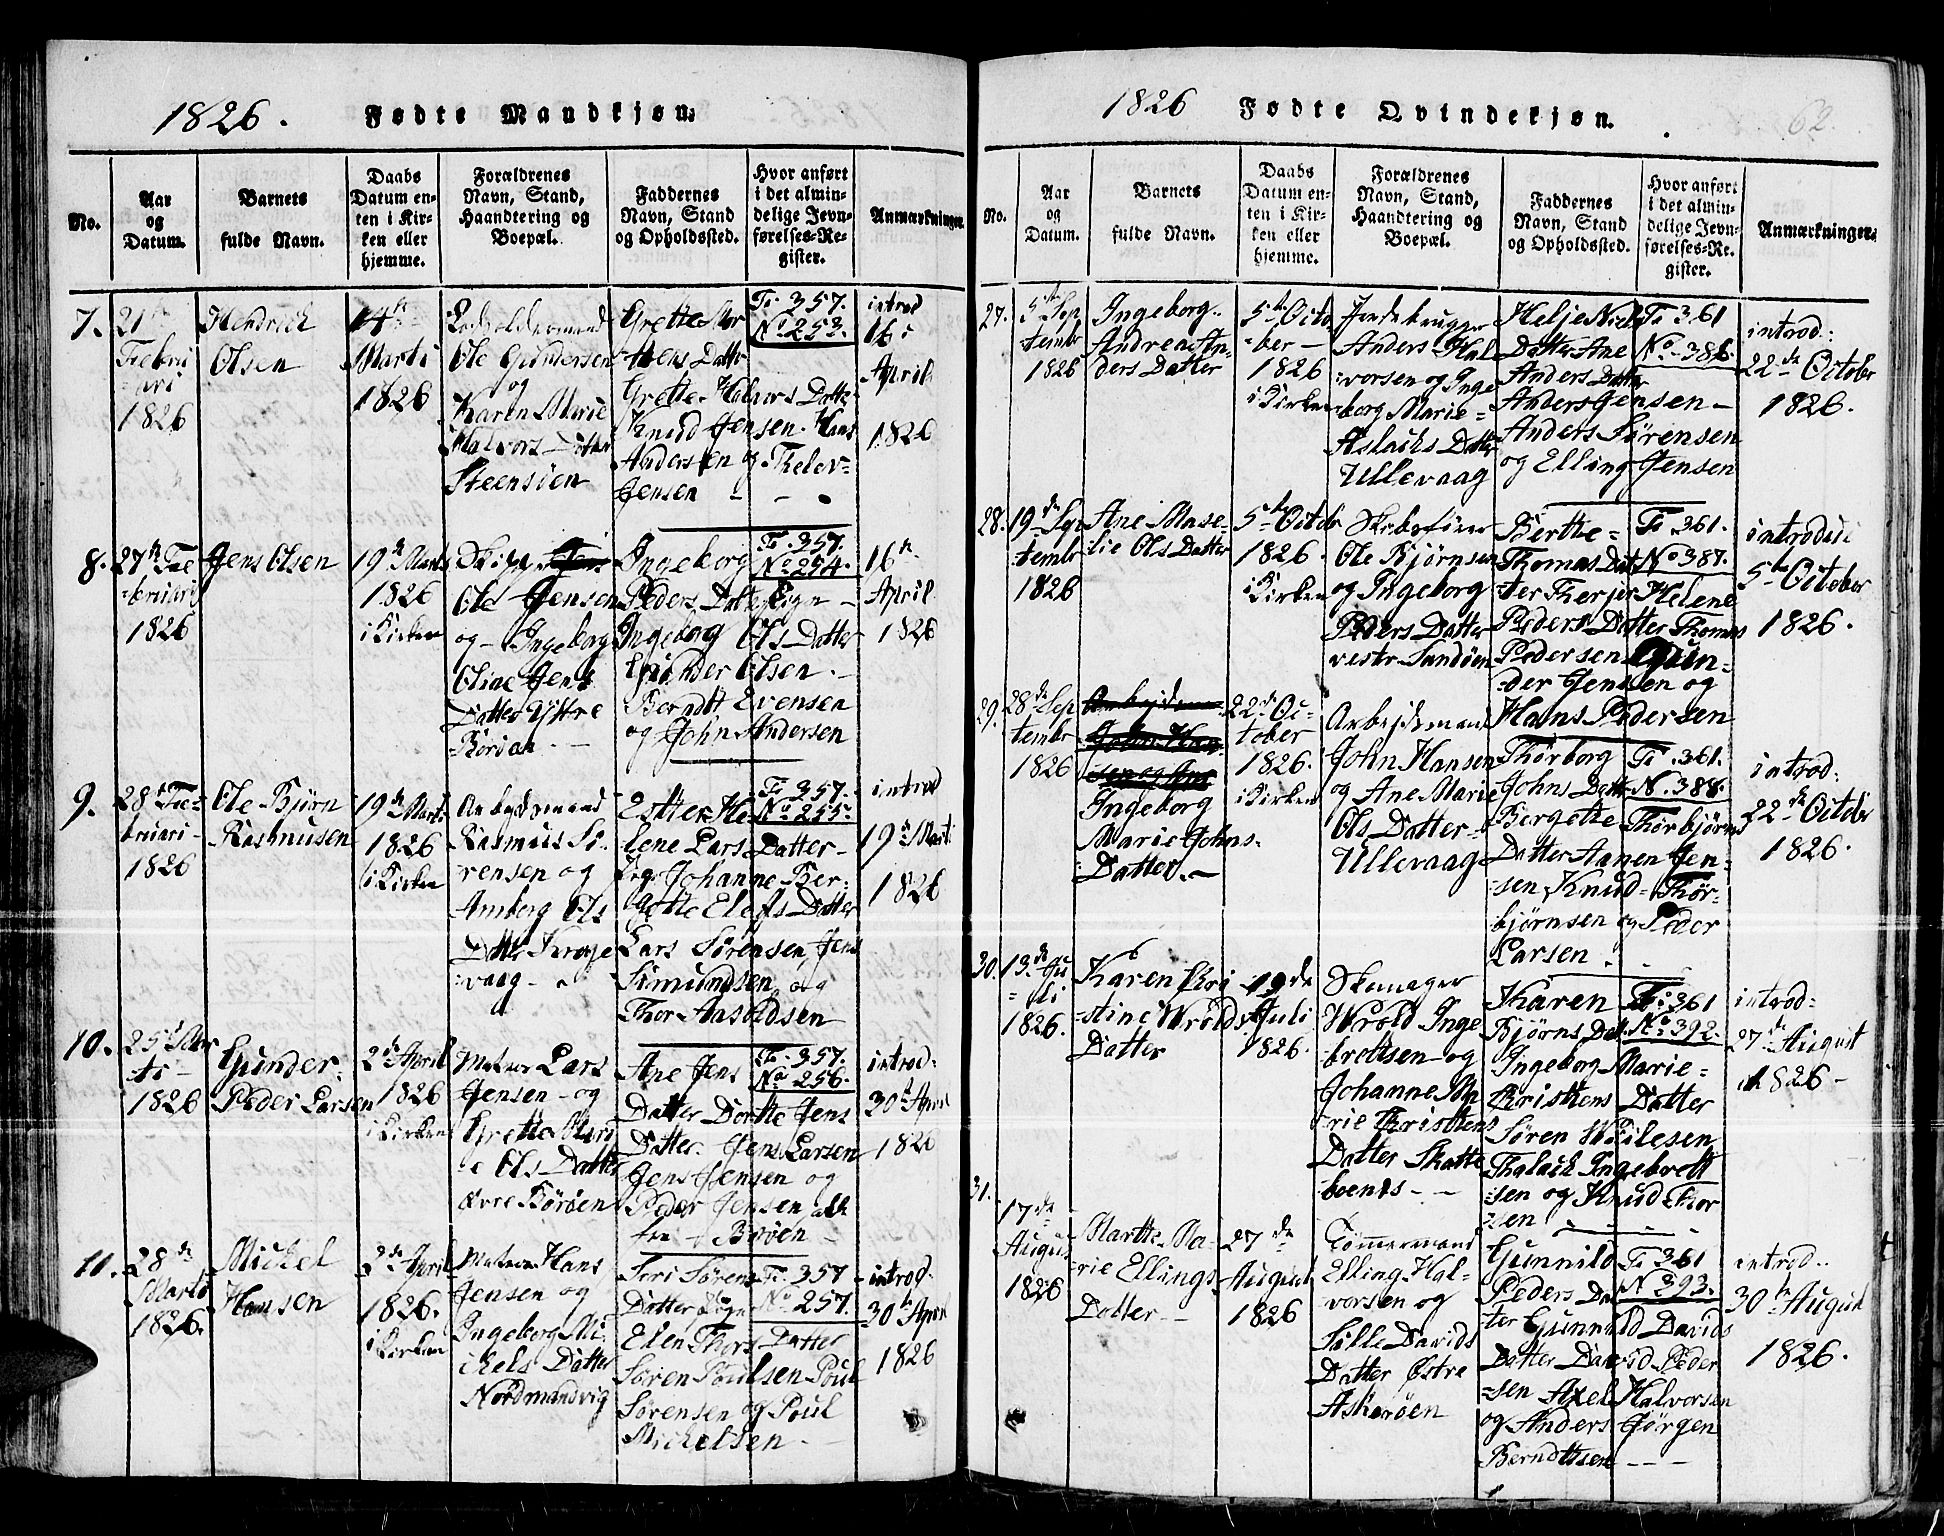 1826. Fødte Mandkjøn.
No.
Aar
og
Datum.
Barnets
fulde Navn.
Daabs
Datum en-
ten i Kir-
ken eller
hjemme.
Forældrenes
Navn, Stand,
Haandtering og
Boepæl.
Faddernes
Navn, Stand
og Opholdssted.
Hvor anført
i det almin-
delige Jevn-
førelses-Re-
gister.
Anmærkninger.
7.
21
Febru
ari
1826
Hendrich
Olsen
14
Marti
1826
Ole Gundersen
og
Karen Marie
Halvors Datter
Steensöen
Grette Mor
tens Datter
Grette Halvors Datter
Knud Jensen. Hans
Andersen og Thelev-
Jensen
Fo 357.
No 253.
introd
16
April
1826
8.
27 Fe
-bruari
1826
Jens Olsen
19de Marti
1826
i Kirken
Ole Jensen
og Ingeborg
Oline Jens
Datter Yttre
Börøen
Ingeborg
Peders Datter
Ingeborg Ols Datter
Gunder Olsen.
Berndt Evensen
og John Andersen
Fo 357.
No 254.
16
April
1826
9.
28 Fe-
bruari-
1826
Ole Bjørn
Rasmusen
19de Marti
1826
i Kirken
Arbeydsmand
Rasmus Sö-
rensen og
Amberg Ols
Datter Krage
vaag
Ester He
lene Lars Datter-
Johanne Ber-
gitte Elefs Datter
Lars Sørensen, Jens
Simundsen og
Thor Aasuldsen
Fo 357.
No 255.
introd
19de Marti
1826
10.
25 Mar
ti-
1826
Gunder
Peder Larsen
2de April
1826
i Kirken
Matros Lars
Jensen og
Grette Mari
e Ols Datter
øvre Börøen
Ane Jens
Datter Dortte Jens
Datter. Jens Larsen
Jens Jensen og
Peder Jensen alle
fra Borøen
Fo 357.
No 256.
introd.
30 April
1826
11.
28de
Marti
1826.
Michel
Hansen
2de April
1826.
i Kirken
Matros Hans
Jensen og
Ingeborg Mi
chels Datter
Nordmandsvig
Siri Sørens
Datter
Elen Thors Datter
Søren Poulsen Poul
Sørensen og Poul
Michelsen
Fo 357
No 257.
introd.
30 April
1826
1826 Fødte Qvindekjøn.
62.
No.
Aar
og
Datum.
Barnets
fulde Navn.
Daabs
Datum en-
ten i Kir-
ken eller
hjemme.
Forældrenes
Navn, Stand,
Haandtering og
Boepæl.
Faddernes
Navn, Stand
og Opholdssted.
Hvor anført
i det almin-
delige Jevn-
førelses-Re-
gister.
Anmærkninger.
27.
5te Sep
tembr
1826
Ingeborg
Andrea An-
ders Datter
5te Octo
-ber-
1826
i Kirken
Jordbrugger
Anders Hal
vorsen og Inge
borg Marie-
Aslachs Datter
Ullevaag
Helje Niels
Datter Ane
Anders Datter
Anders Jensen-
Anders Sörensen
og Elling Jensen
Fo 361
No 386
introd:
22de October
1826.
28.
19de Sep
tembr
1826
Ane Mase-
lie Ols Datter
5te Octobr
1826.
i Kirken
Ole Bjørnsen
og Ingeborg
Peders Datter
vestr Sandöen
Berthe-
Thomas Dat
ter Therjer Helene
Peders Datter Thomas
Pedersen Gun-
der Jensen og
Hans Pedersen
Fo 361.
No 387.
introduci
5te October
1826.
29.
28de Sep
tembr
1826
Arbejdsman
John Han
sen og Ane
Ingeborg
Marie Johns
Datter.
22de Oc-
tober
1826.
i Kirken
Arbejdsmand
John Hansen
og Ane Marie
Ols Datter-
Ullevaag
Thörborg
Johns Datter
Bergette Thörbjörns
Datter Aanen Jen-
sen, Knud Thör-
bjørnsen og Peder
Larsen
Fo 361.
No 388.
introd:
22de October
1826.
30.
13de Ju
li
1826.
Karen Kri
-stine Wrolds
Datter
19de
Juli
1826.
Skomager
Wrold Inge
brettsen og
Johanne Ma
rie Kristtens
Datter Skatte
boends
Karen
Bjørns Dat
Ingeborg Marie-
Kristtens Datter
Søren Woilesen
Thalack Ingebrett
sen og Knud Thor
sen
Fo 361
No 392.
introd:
27de August
1826
31.
17de
Augus
1826
Martte Ma-
rie Ellings
Datter
27de
August
1826
Tömmermand
Elling Hal-
vorsen og
Sille Davids
Datter Østre
Askerøen
Gunnild
Peders Dat
ter Gunnild Davids
Datter David Peder
sen Axel Halvorsen
og Anders Jørgen
Berndtsen
Fo 361
No 393.
introd..
30 August
1826.